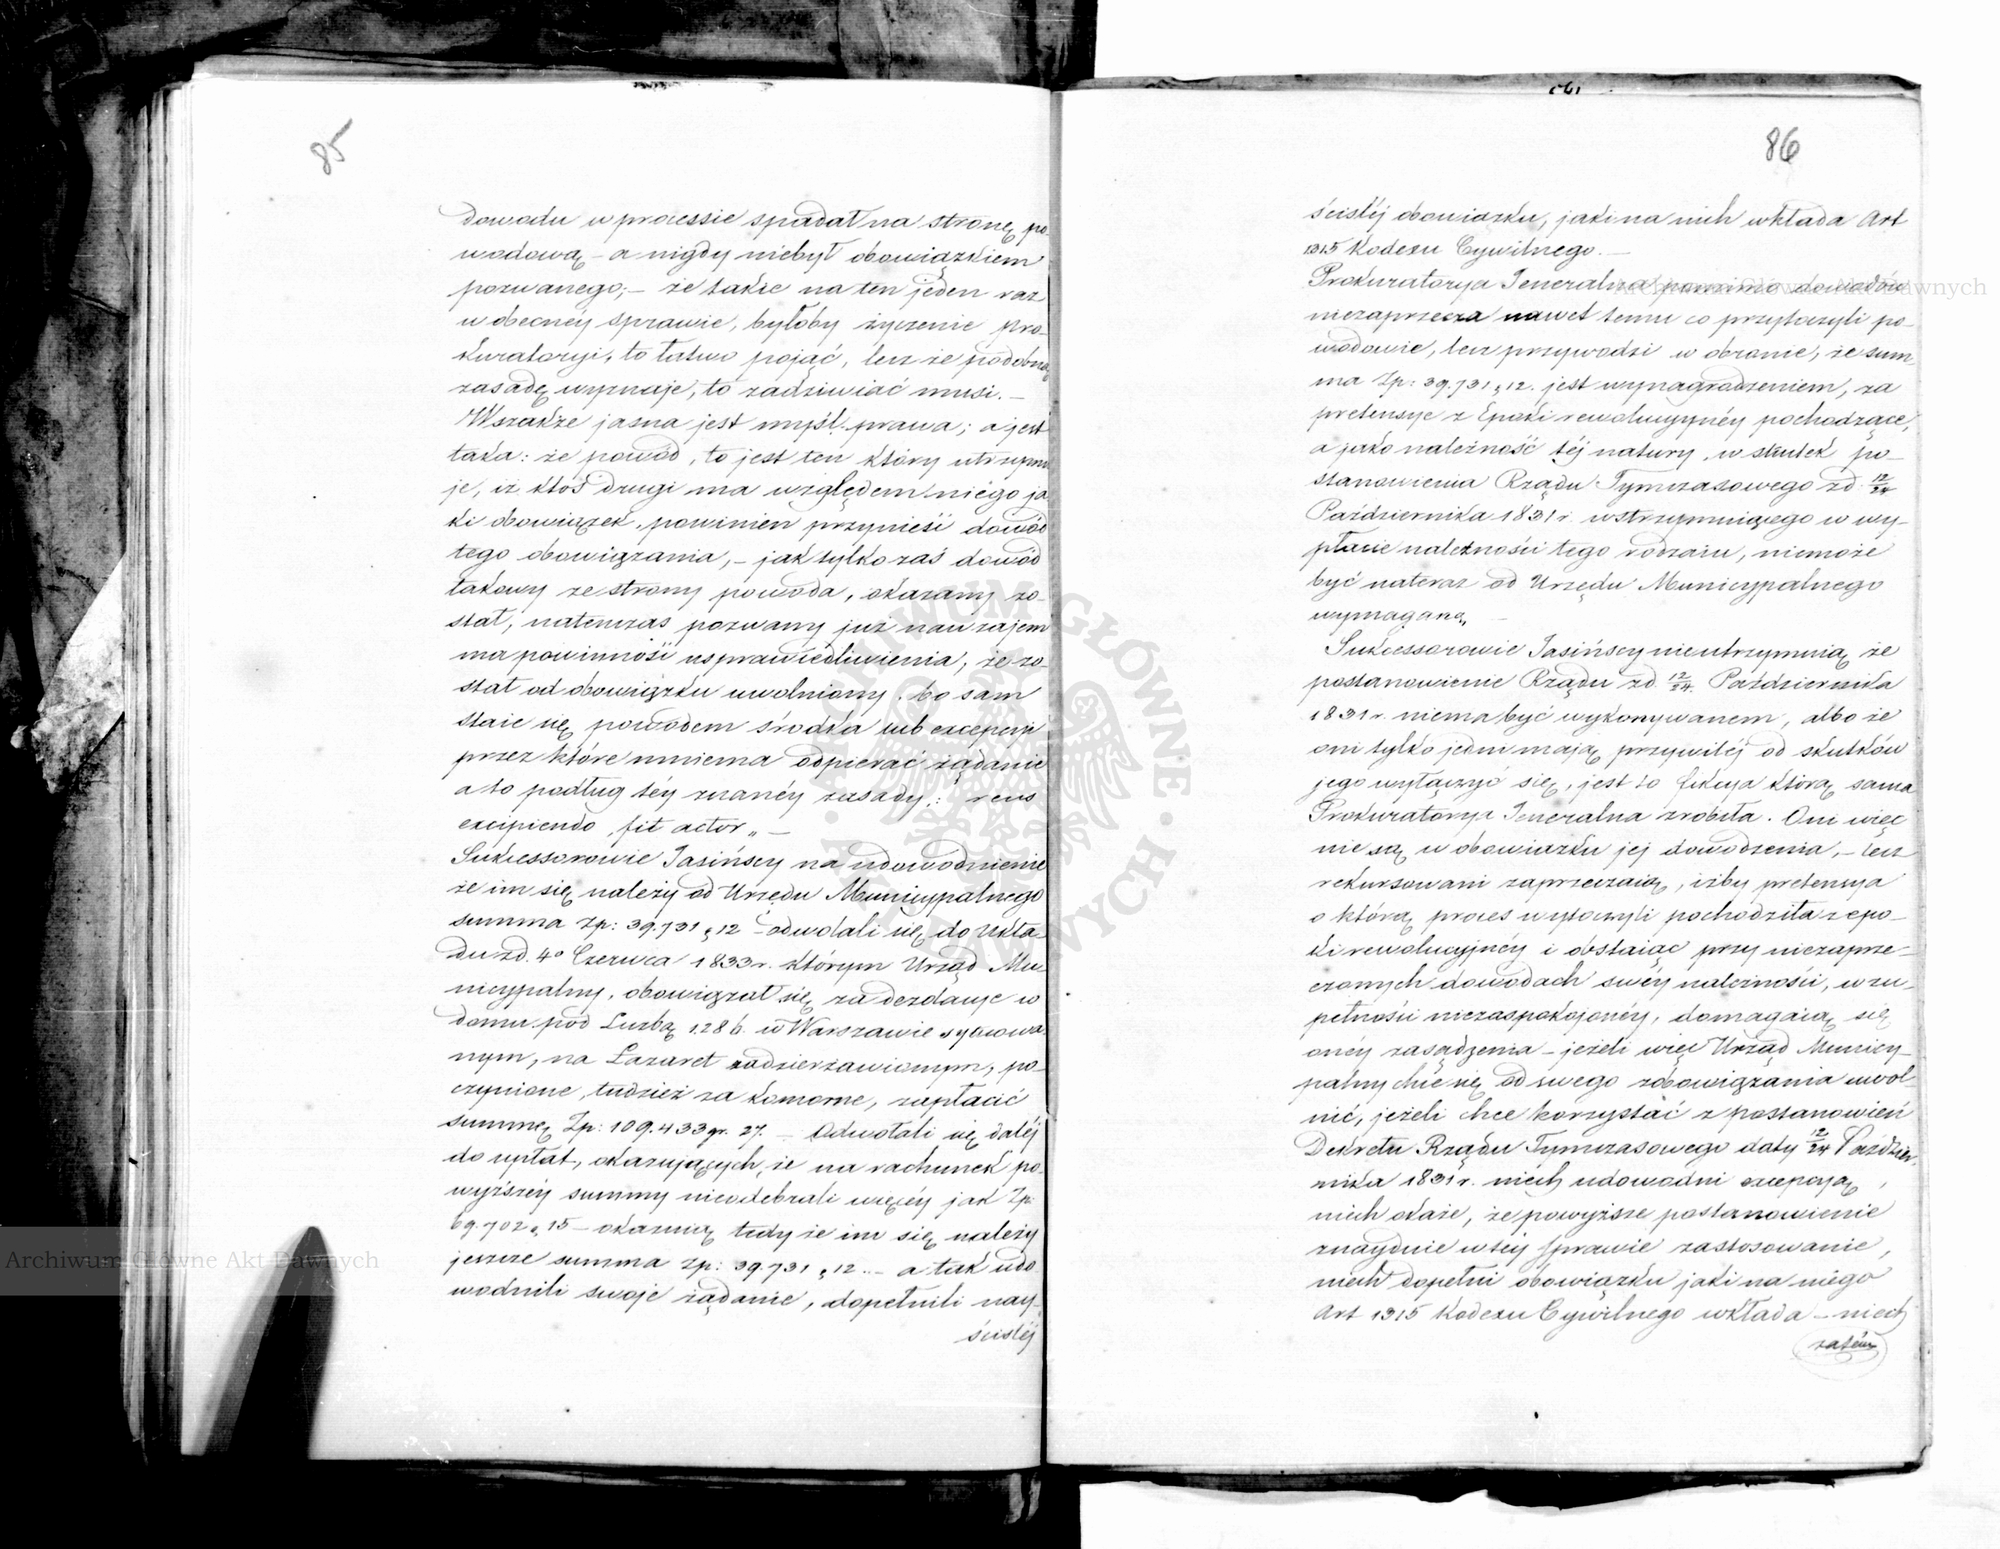 85
dowodu w processie spadał na stronę po-
wodową – a nigdy niebył obowiązkiem
pozwanego; – że takie na ten jeden raz
w obecnéy sprawie, byłoby życzenie Pro-
kuratoryi, to łatwo pojąć, lecz że podobną
zasadę wyznaje, to zadziwiać musi. –
Wszakże jasna jest myśl prawa; a jest
taka: że powód, to jest ten który utrzymu
je, iż ktoś drugi ma względem niégo ja
ki obowiązek, powinien przynieść dowód
tego obowiązania, – jak tylko zaś dowód
takowy ze strony powoda, okazany zo-
stał, natenczas pozwany już nawzajem
ma powinność usprawiedliwienia, że zo-
stał od obowiązku uwolniony, bo sam
staie się powodem środka lub excepcyi
przez które mniema odpierać żądanie
a to podług téy znanéy zasady: reus
excipiendo fit actor„ –
Sukcessorowie Jasińscy na udowodnienie
że im się należy od Urzędu Municypalnego
summa Zp: 39.731 „ 12 – odwołali się do Ukła-
du zd. 4º Czerwca 1833 r. którym Urząd Mu-
nicypalny, obowiązał się za dezolacye w
domu pod Liczbą 1286. w Warszawie sytuowa
nym, na Lazaret zadzierżawionym, po-
czynione, tudzież za komorne, zapłacić
summę Zp: 109.433 gr. 27. – Odwołali się daléj
do upłat, okazujących, że na rachunek po-
wyższéy summy nieodebrali więcéy jak Zp:
69.702 „ 15 – okazuią tedy że im się należy
jeszcze summa Zp: 39.731 „ 12. – a tak udo
wodnili swoje żądanie, dopełnili nay-
ściśléj
86
ściśléj obowiązku, jaki na nich wkłada Art
1315 Kodexu Cywilnego. –
Prokuratorya Jeneralna pomimo dowodów
niezaprzecza nawet temu co przytoczyli po-
wodowie, lecz przywodzi w obronie, że sum-
ma Zp: 39.731 „ 12. jest wynagrodzeniem, za
pretensye z Epoki rewolucyynéy pochodzące,
a jako należność téj natury, w skutek po-
stanowienia Rządu Tymczasowego zd. 12/24
Października 1831 r. wstrzymuiącego w wy-
płacie należności tego rodzaiu, niemoże
być nateraz od Urzędu Municypalnego
wymaganą„ –
Sukcessorowie Jasińscy nie utrzymuią że
postanowienie Rządu zd. 12/24. Października
1831 r. niema być wykonywanem, albo że
oni tylko jedni mają przywiléj od skutków
jego wyłączyć się, jest to fikcya którą sama
Prokuratorya Jeneralna zrobiła. Oni więc
nie są w obowiązku jej dowodzenia, – lecz
rekursowani zaprzeczaią, iżby pretensya
o którą proces wytoczyli pochodziła z epo-
ki rewolucyjnéy i obstaiąc przy niezaprze-
czonych dowodach swéy należności, w zu-
pełności niezaspokojonéy, domagaią się
onéy zasądzenia – jeżeli więc Urząd Municy-
palny chce się od swego zobowiązania uwol-
nić, jeżeli chce korzystać z postanowień
Dekretu Rządu Tymczasowego daty 12/24 Paździer-
nika 1831 r. niech udowodni excepcyą,
niech okaże, że powyższe postanowienie
znayduie w téj sprawie zastosowanie,
niech dopełni obowiązku jaki na niégo
Art 1315 Kodexu Cywilnego wkłada – niech
zatém